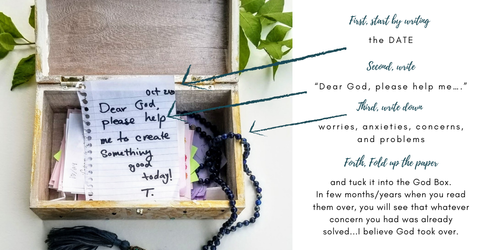 Oct
Dear God,
please help
me to create
Something
good
today!
T.
First, start by writing
the DATE
Second, write
"Dear God, please help me...."
Third, write down
worries, anxieties, concerns,
and problems
Forth, Fold up the paper
and tuck it into the God Box.
In few months/years when you read
them over, you will see that whatever
concern you had was already
solved...I believe God took over.